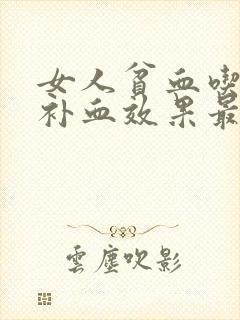 女人贫血喫
补血效果最
雲塵吹影